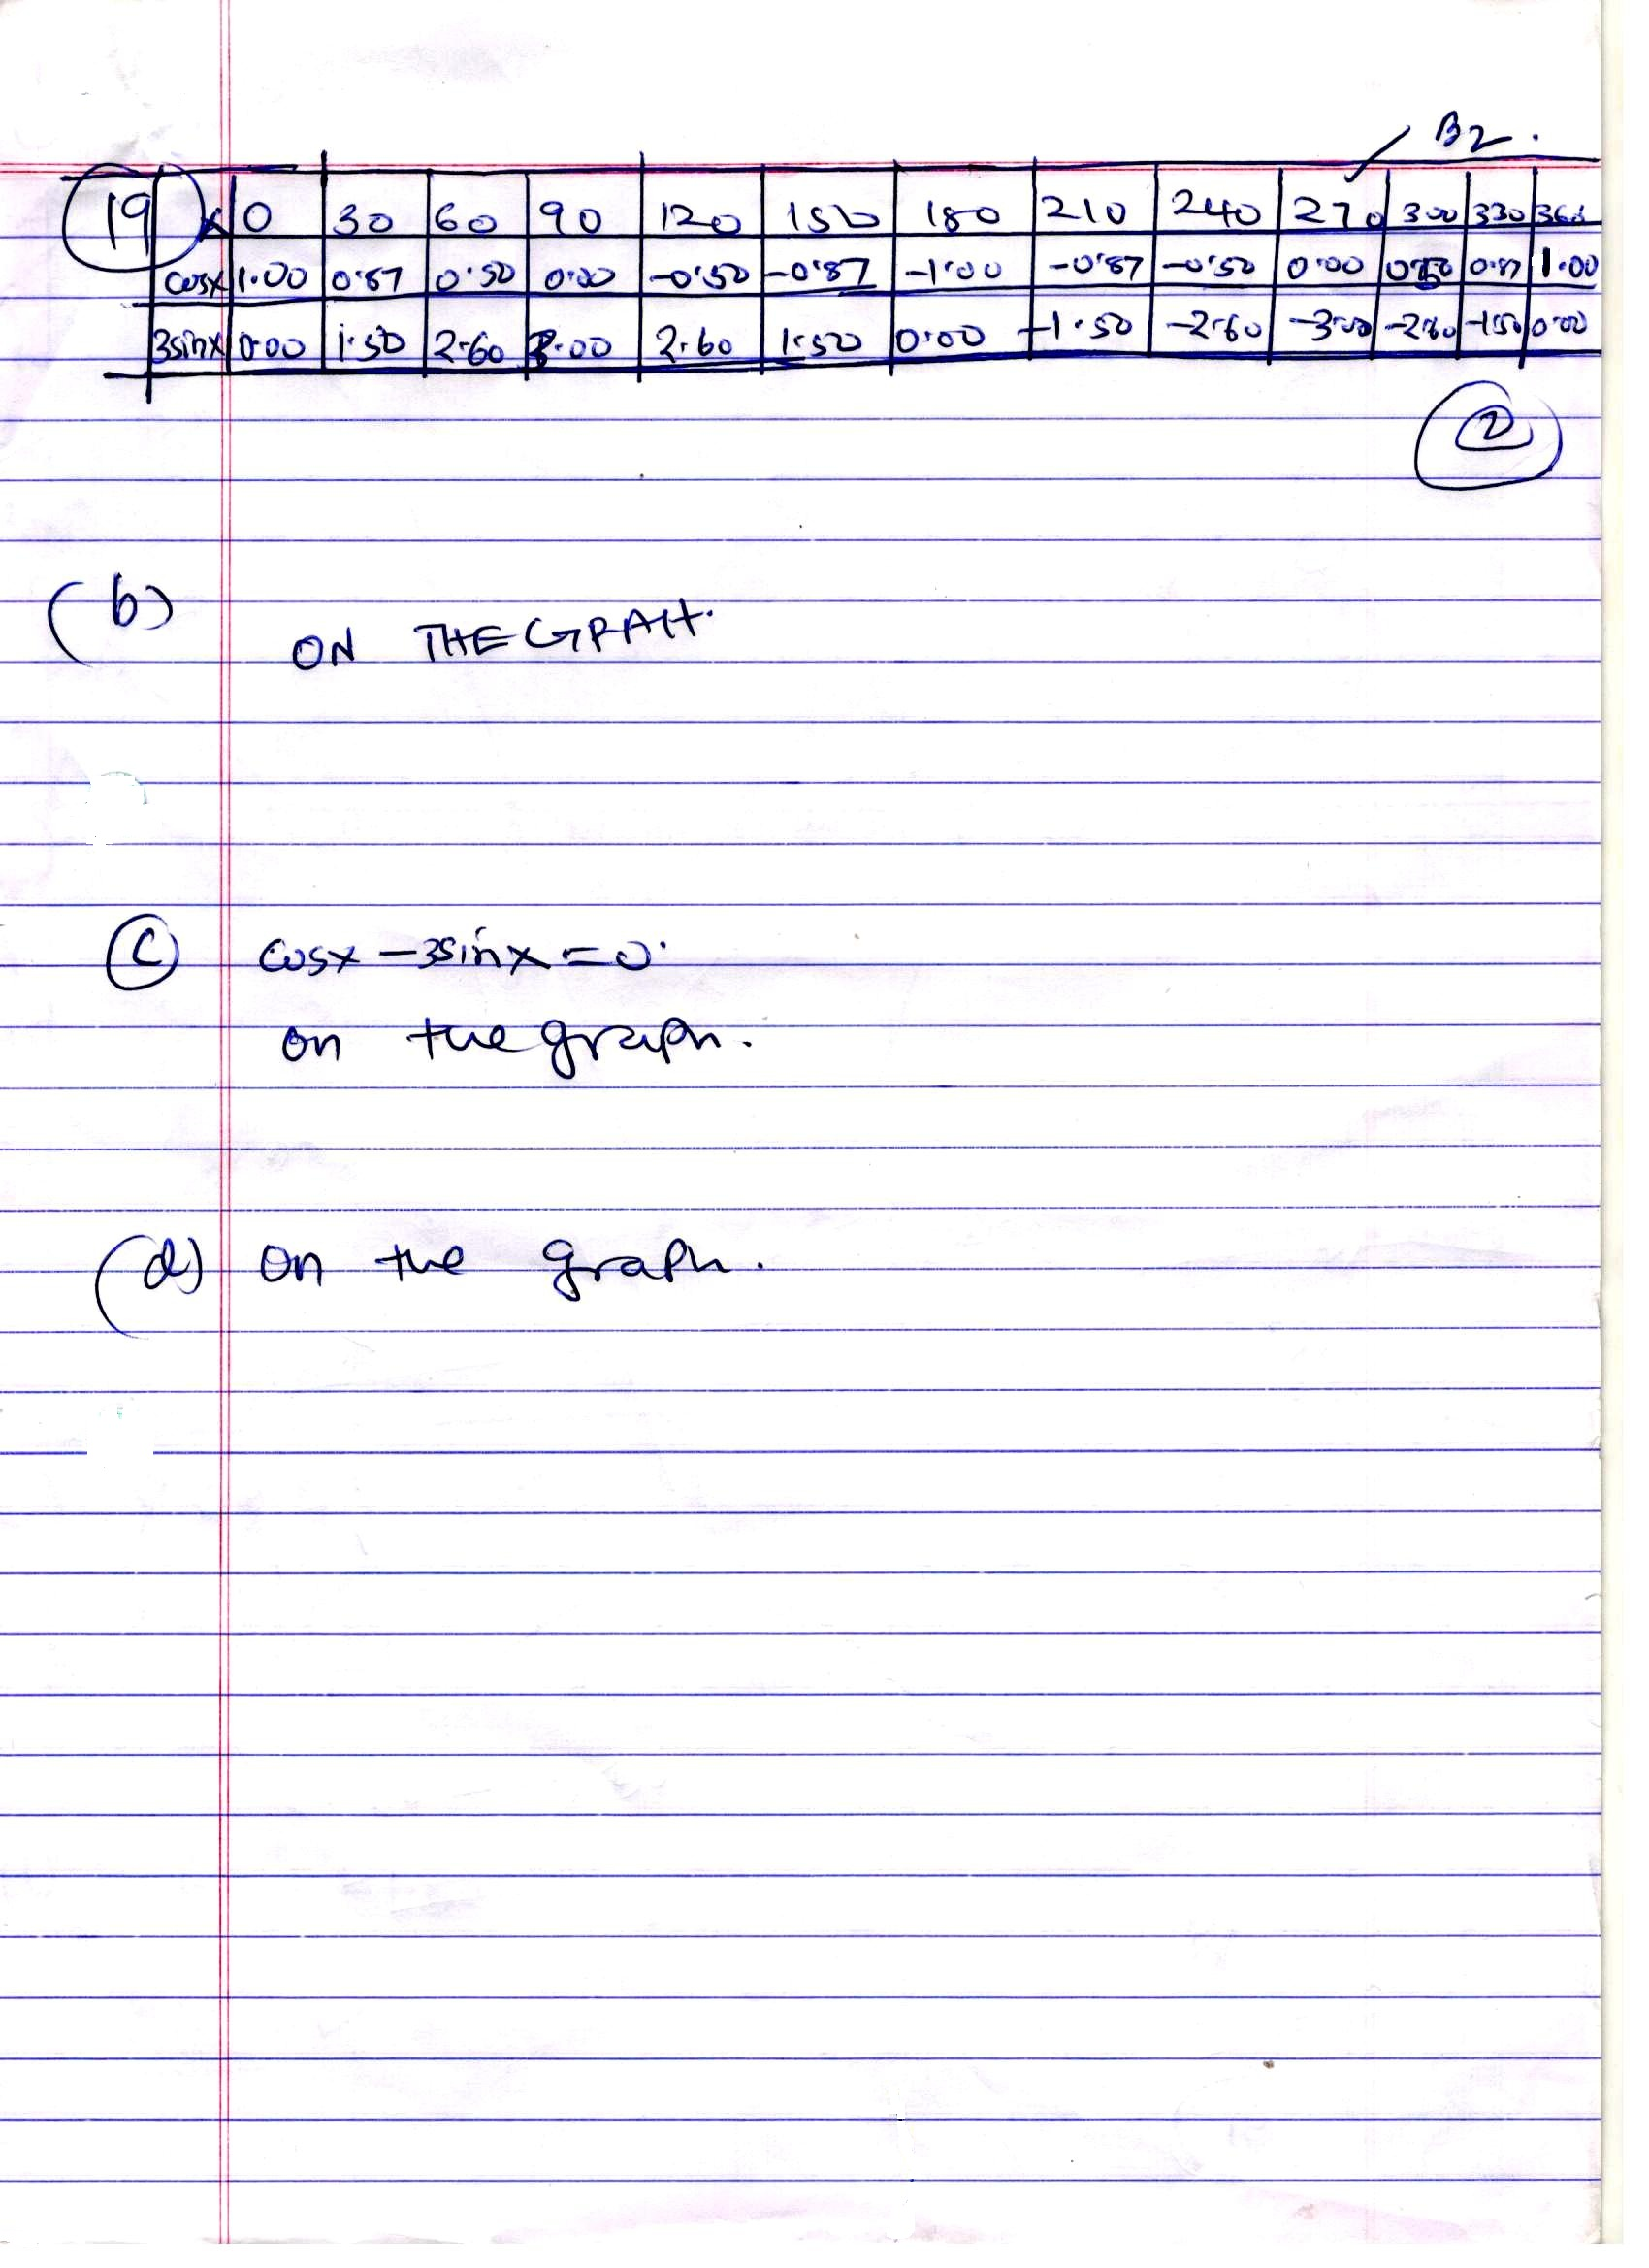 B2.
19 x 0 30 60 90 120 150 180 210 240 270 300 330 360
cosx 1.00 0.87 0.50 0.00 -0.50 -0.87 -1.00 -0.87 -0.50 0.00 0.50 0.87 1.00
3sinx 0.00 1.50 2.60 3.00 2.60 1.50 0.00 -1.50 -2.60 -3.00 -2.60 -1.50 0.00
2
(b)
ON THE GRAH.
(c) cosx - 3sinx = 0.
on the graph.
(d) on the graph.